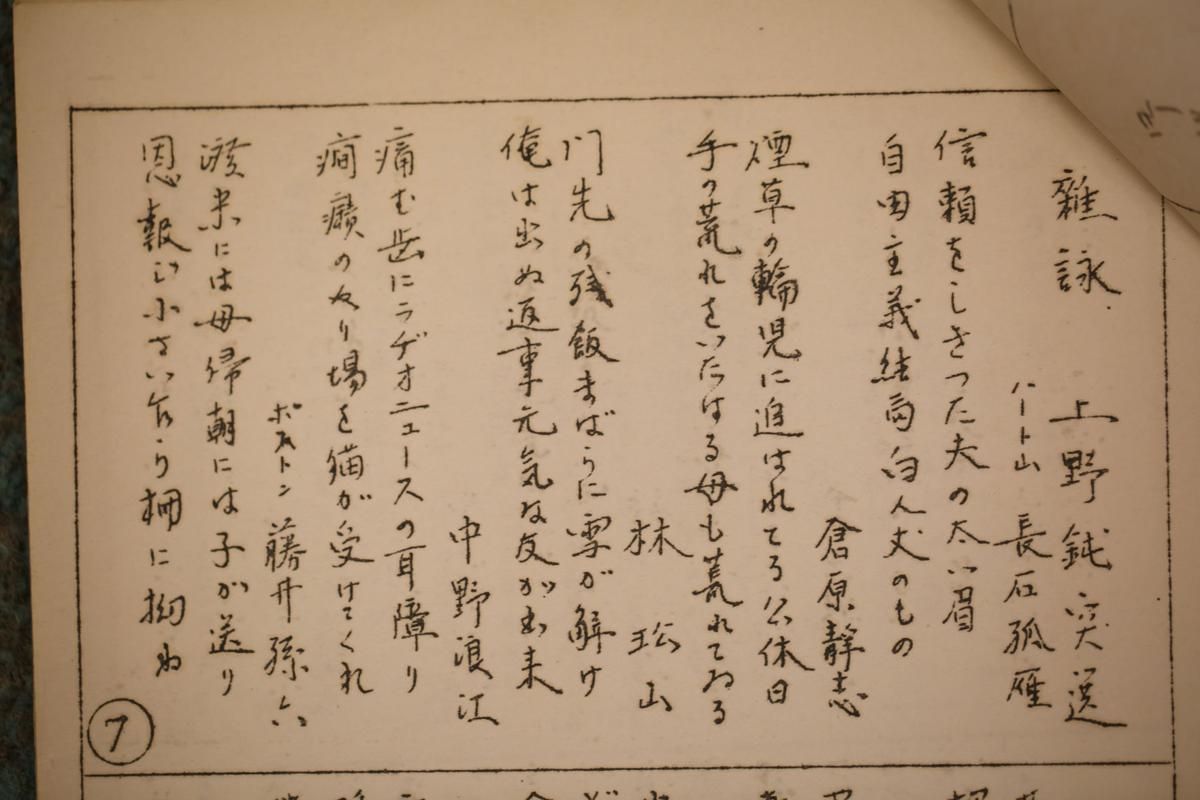 雑詠　上野鈍突選
ハート山　長石孤雁
信頼をしきつた夫の太い眉
自由主義結局白人丈のもの
倉原静志
煙草の輪児に追はれてる公休日
手の荒れをいたはる母も荒れてゐる
林　松山
門先の残飯まばらに雪が解け
俺は出ぬ返事元気な友が出来
中野浪江
痛む歯にラヂオニュースの耳障り
癇癪のやり場を猫が受けてくれ
ボストン　藤井孫六
渡米には母帰朝には子が送り
恩報じ小さい乍ら柵に拗ね
7